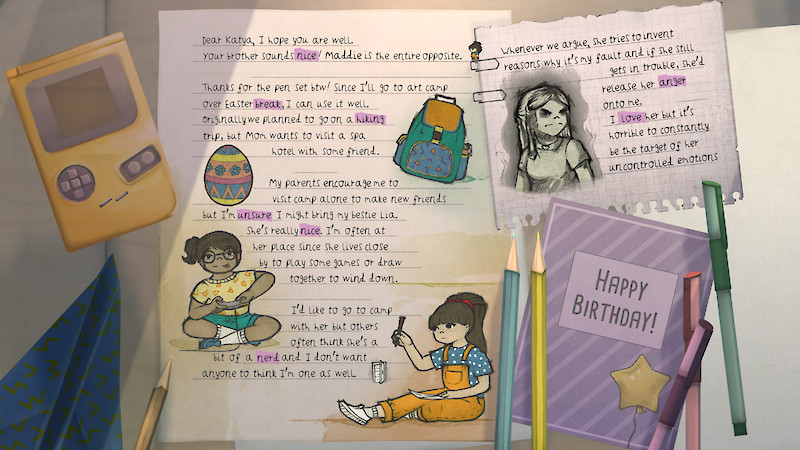 Dear Katya, I hope you are well.
Your brother sounds nice! Maddie is the entire opposite.
Thanks for the pen set btw! Since I'll go to art camp
over Easter break, I can use it well.
Originally we planned to go on a hiking
trip, but Mom wants to visit a spa
hotel with some friend.
My parents encourage me to
visit camp alone to make new friends
but I'm unsure I might bring my bestie Lia.
She's really nice. I'm often at
her place since she lives close
by to play some games or draw
together to wind down.
I'd like to go to camp
with her but others
often think she's a
bit of a nerd and I don't want
anyone to think I'm one as well.
Whenever we argue, she tries to invent
reasons why it's my fault and if she still
gets in trouble, she'd
release her anger
onto me.
I love her but it's
horrible to constantly
be the target of her
uncontrolled emotions
HAPPY
BIRTHDAY!